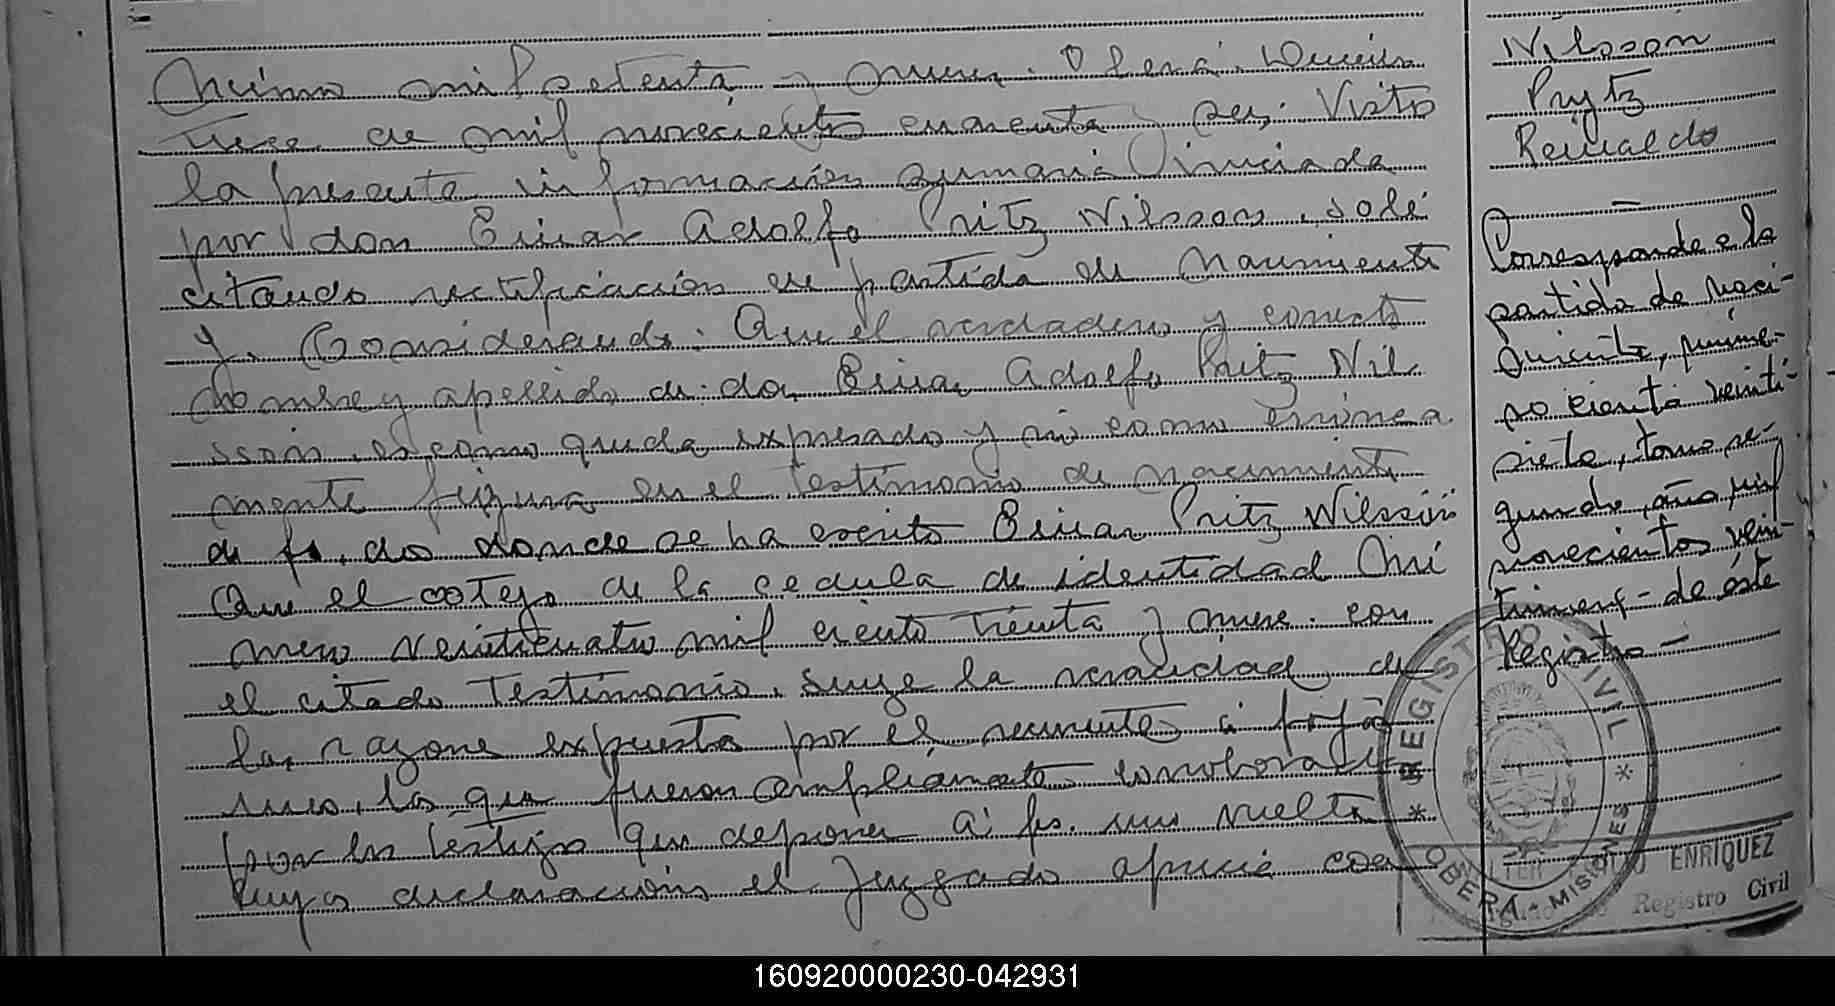 Número mil setenta y nueve. Oberá.
trece de mil novecientos cuarenta y seis. Visto
la presente información sumaria iniciada
por don Einar Adolfo Pritz Nilsson, soli
citando rectificación de partida de nacimiento
y, Considerando: Que el verdadero y correcto
nombre y apellido de don Einar Adolfo Pritz Nil
sson, es como queda expresado y no como errónea
mente figura en el testimonio de nacimiento
de fs. dos donde se ha escrito Einar Pritz Nilsson
Que el cotejo de la cedula de identidad Nú
mero veinticuatro mil ciento treinta y nueve. con
el citado testimonio, surge la veracidad de
las razones expuestas por el recurrente a fojas
uno, los que fueron ampliamente corroborados
por los testigos que deponen a fs. uno vuelta
cuyas declaraciones el Juzgado aprecia con
Nilsson
Prytz
Reinaldo
Corresponde a la
partida de naci-
miento, núme-
ro ciento veinti-
siete, tomo se-
gundo, año mil
novecientos vein-
tinueve - de éste
Registro -
REGISTRO CIVIL
* OBERA - MISIONES *
ENRIQUEZ
Registro Civil
160920000230-042931